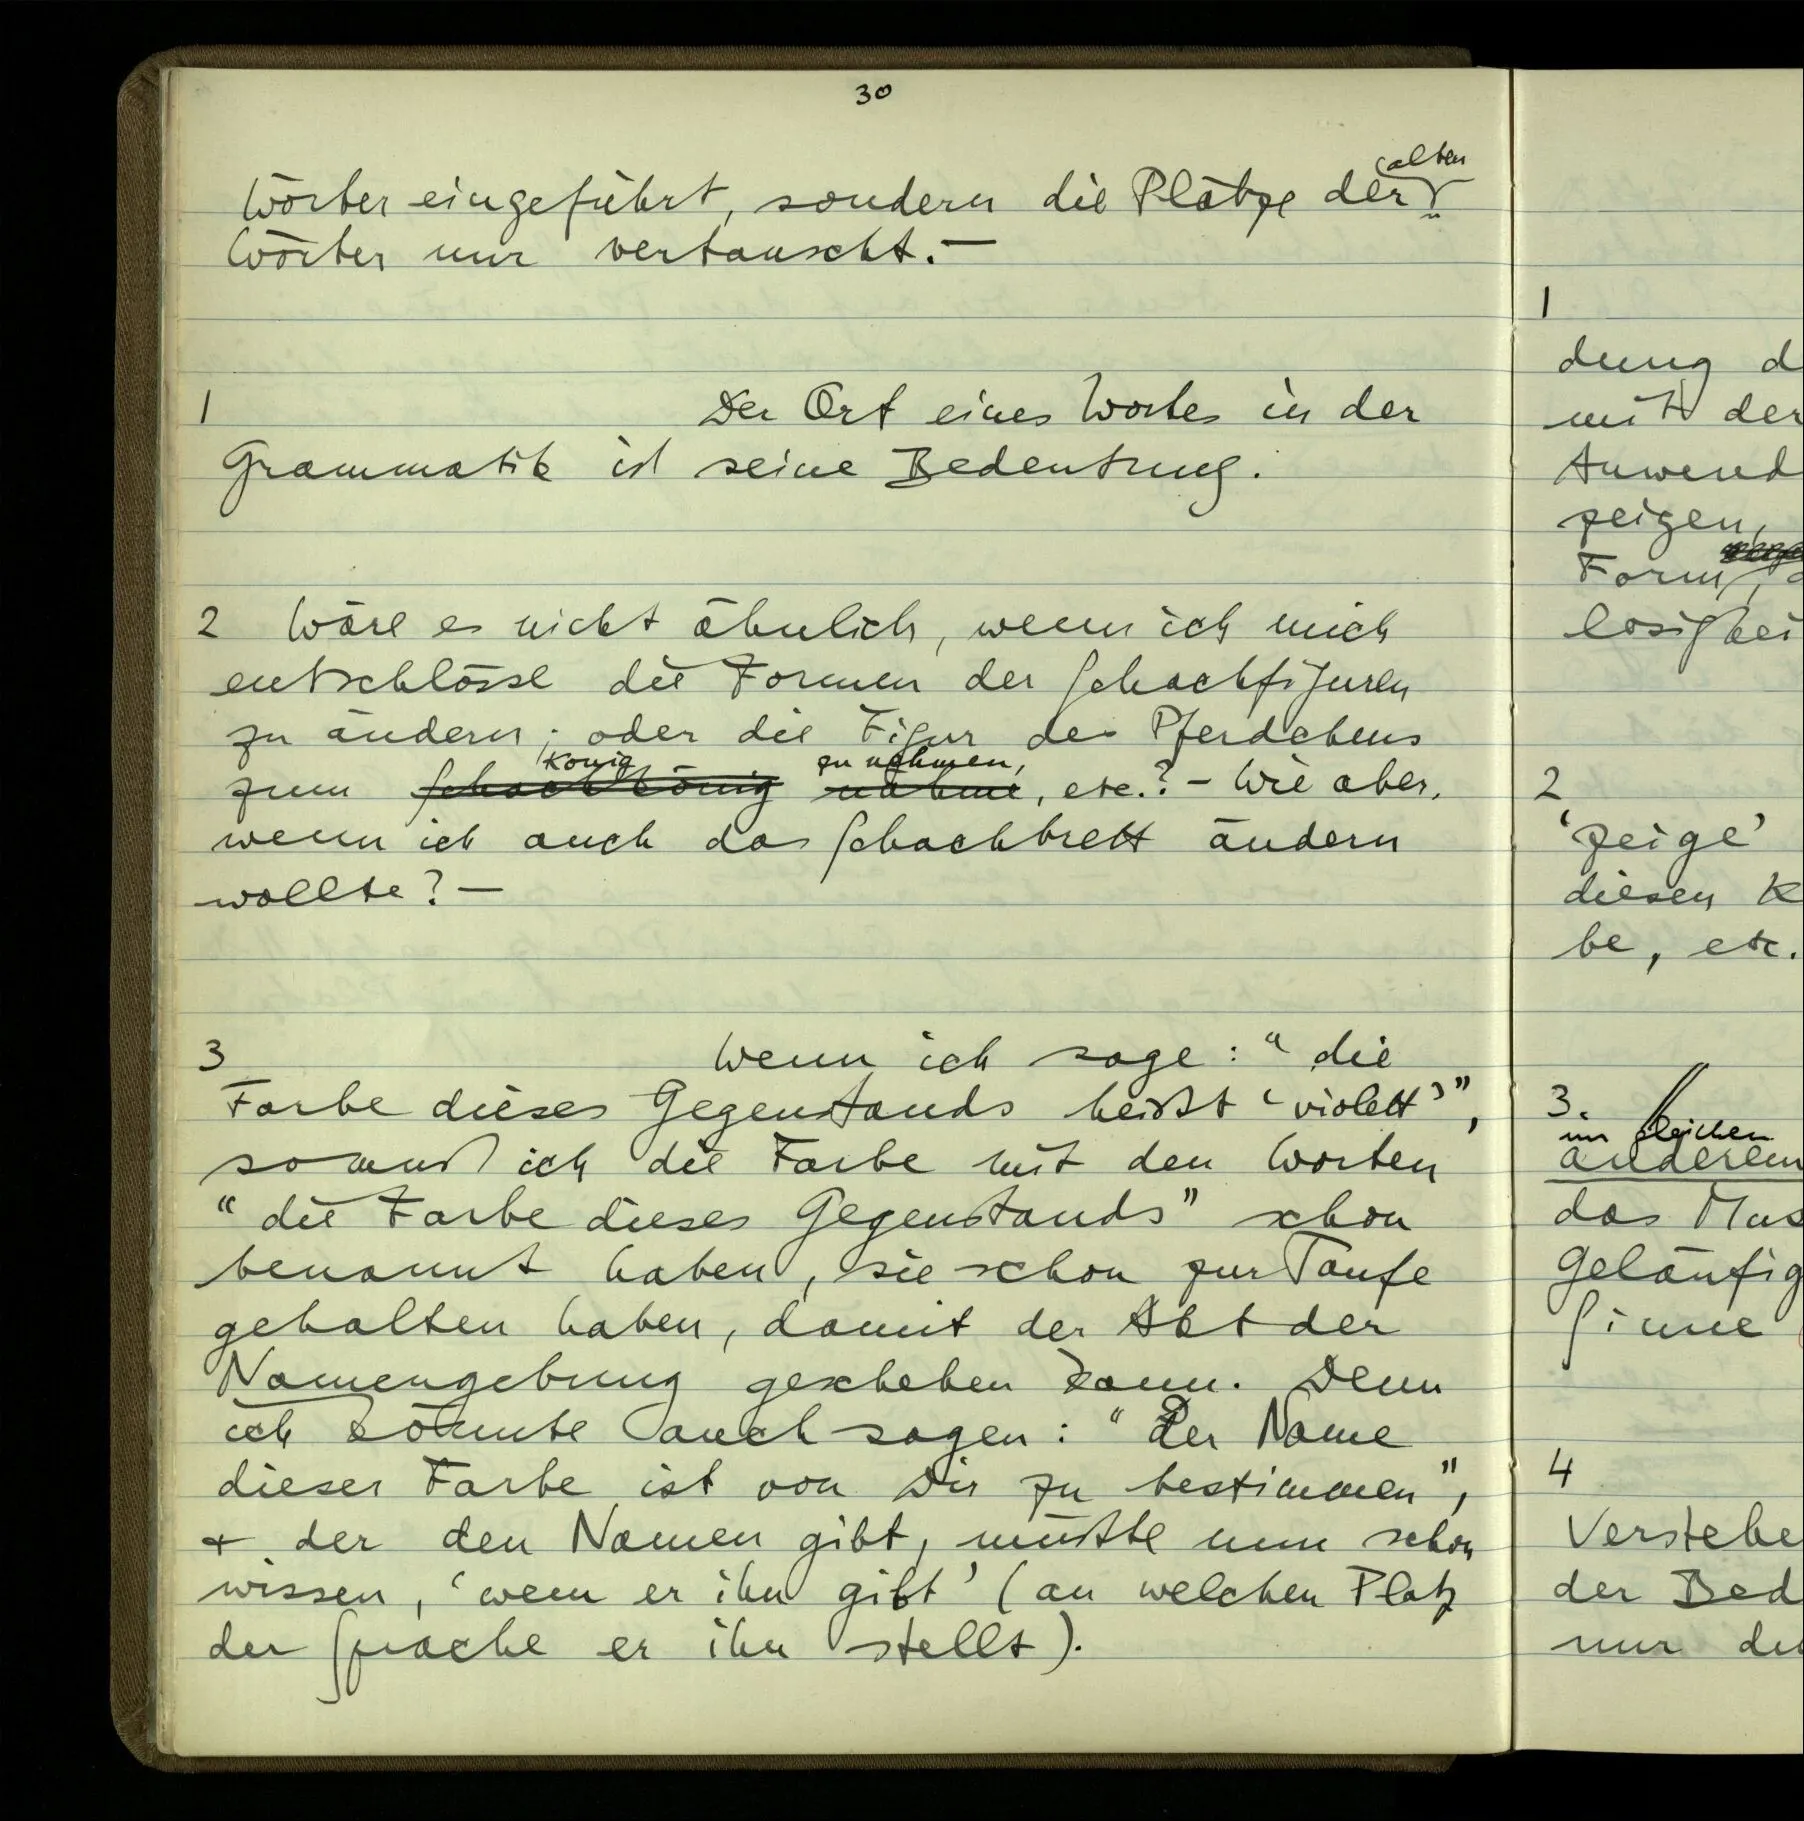 30
alten
Wörter eingeführt, sondern die Plätze der
Wörter nur vertauscht. –
1 Der Ort eines Wortes in der
Grammatik ist seine Bedeutung.
2 Wäre es nicht ähnlich, wenn ich mich
entschlösse die Formen der Schachfiguren
zu ändern; oder die Figur des Pferdchens
König zu nehmen,
zum Schachkönig nähme, etc.? – Wie aber,
wenn ich auch das Schachbrett ändern
wollte? –
3 Wenn ich sage: “die
Farbe dieses Gegenstands heißt ‘violett’”,
so muß ich die Farbe mit den Worten
“die Farbe dieses Gegenstands” schon
benannt haben, sie schon zur Taufe
gehalten haben, damit der Akt der
Namengebung geschehen kann. Denn
ich könnte auch sagen: “Der Name
dieser Farbe ist von Dir zu bestimmen”,
+ der den Namen gibt, müßte nun schon
wissen, ‘wem er ihn gibt’ (an welchen Platz
der Sprache er ihn stellt).
1
dung d
mit der
Anwend
zeigen,
Form,
losigkei
2
‘zeige’
diesen K
be, etc.
3.
im gleichen
anderem
das Mus
geläufig
Sinne
4
Verstehe
der Bed
nur du